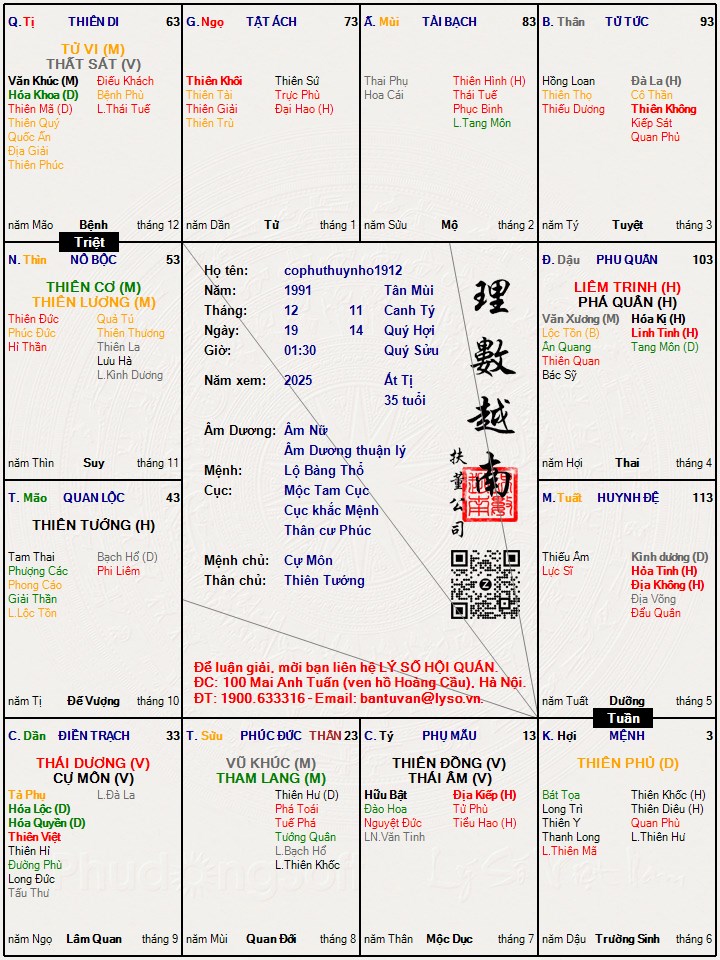 Q. Tị THIÊN DI 63
TỬ VI (M)
THẤT SÁT (V)
Văn Khúc (M) Điếu Khách
Hóa Khoa (D) Bệnh Phù
Thiên Mã (D) L.Thái Tuế
Thiên Quý
Quốc Ấn
Địa Giải
Thiên Phúc
năm Mão Bệnh tháng 12
G. Ngọ TẬT ÁCH 73
Thiên Khôi Thiên Sứ
Thiên Tài Trực Phù
Thiên Giải Đại Hao (H)
Thiên Trù
năm Dần Tử tháng 1
Ấ. Mùi TÀI BẠCH 83
Thai Phụ Thiên Hình (H)
Hoa Cái Thái Tuế
Phục Binh
L.Tang Môn
năm Sửu Mộ tháng 2
B. Thân TỬ TỨC 93
Hồng Loan Đà La (H)
Thiên Thọ Cô Thần
Thiếu Dương Thiên Không
Kiếp Sát
Quan Phủ
năm Tý Tuyệt tháng 3
Triệt
N. Thìn NÔ BỘC 53
THIÊN CƠ (M)
THIÊN LƯƠNG (M)
Thiên Đức Quả Tú
Phúc Đức Thiên Thương
Hỉ Thần Thiên La
Lưu Hà
L.Kình Dương
năm Thìn Suy tháng 11
Họ tên: cophuthuynho1912
Năm: 1991 Tân Mùi
Tháng: 12 11 Canh Tý
Ngày: 19 14 Quý Hợi
Giờ: 01:30 Quý Sửu
Năm xem: 2025 Ất Tị
35 tuổi
Âm Dương: Âm Nữ
Âm Dương thuận lý
Mệnh: Lộ Bàng Thổ
Cục: Mộc Tam Cục
Cục khắc Mệnh
Thân cư Phúc
Mệnh chủ: Cự Môn
Thân chủ: Thiên Tướng
理數越南
扶董公司
Để luận giải, mời bạn liên hệ LÝ SỐ HỘI QUÁN.
ĐC: 100 Mai Anh Tuấn (ven hồ Hoàng Cầu), Hà Nội.
ĐT: 1900.633316 - Email: bantuvan@lyso.vn.
Đ. Dậu PHU QUÂN 103
LIÊM TRINH (H)
PHÁ QUÂN (H)
Văn Xương (M) Hóa Kị (H)
Lộc Tồn (B) Linh Tinh (H)
Ân Quang Tang Môn (D)
Thiên Quan
Bác Sỹ
năm Hợi Thai tháng 4
T. Mão QUAN LỘC 43
THIÊN TƯỚNG (H)
Tam Thai Bạch Hổ (D)
Phượng Các Phi Liêm
Phong Cáo
Giải Thần
L.Lộc Tồn
năm Tị Đế Vượng tháng 10
M. Tuất HUYNH ĐỆ 113
Thiếu Âm Kình dương (D)
Lực Sĩ Hỏa Tinh (H)
Địa Không (H)
Địa Võng
Đẩu Quân
năm Tuất Dưỡng tháng 5
Tuần
C. Dần ĐIỀN TRẠCH 33
THÁI DƯƠNG (V)
CỰ MÔN (V)
Tả Phụ L.Đà La
Hóa Lộc (D)
Hóa Quyền (D)
Thiên Việt
Thiên Hỉ
Đường Phù
Long Đức
Tấu Thư
năm Ngọ Lâm Quan tháng 9
T. Sửu PHÚC ĐỨC THÂN 23
VŨ KHÚC (M)
THAM LANG (M)
Thiên Hư (D)
Phá Toái
Tuế Phá
Tướng Quân
L.Bạch Hổ
L.Thiên Khốc
năm Mùi Quan Đới tháng 8
C. Tý PHỤ MẪU 13
THIÊN ĐỒNG (V)
THÁI ÂM (V)
Hữu Bật Địa Kiếp (H)
Đào Hoa Tử Phù
Nguyệt Đức Tiểu Hao (H)
LN.Văn Tinh
năm Thân Mộc Dục tháng 7
K. Hợi MỆNH 3
THIÊN PHỦ (D)
Bát Tọa Thiên Khốc (H)
Long Trì Thiên Diêu (H)
Thiên Y Quan Phù
Thanh Long L.Thiên Hư
L.Thiên Mã
năm Dậu Trường Sinh tháng 6